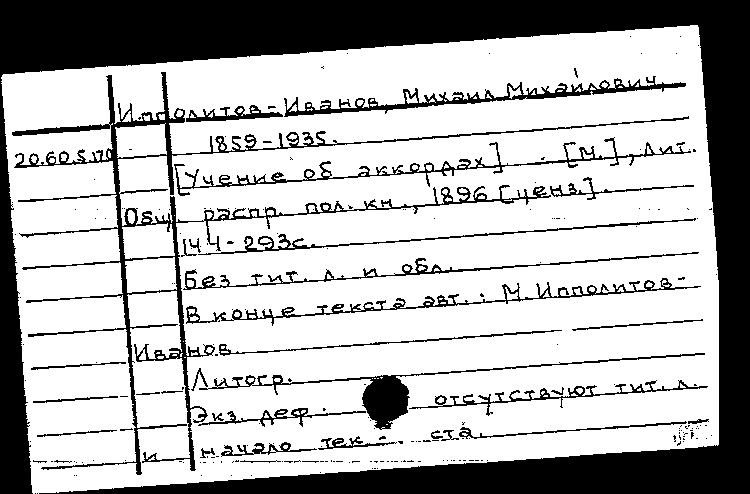 Ипполитов-Иванов, Михаил Михайлович,
1859-1935.
20.60.5.170
[Учение об аккордах] . [М.], Лит.
Общ. распр. пол. кн., 1896 [ценз.].
144-293с.
Без тит. л. и обл.
В конце текста авт.: М. Ипполитов-
Иванов.
Литогр.
Экз. деф.: отсутствуют тит. л.
и начало тек-ста.